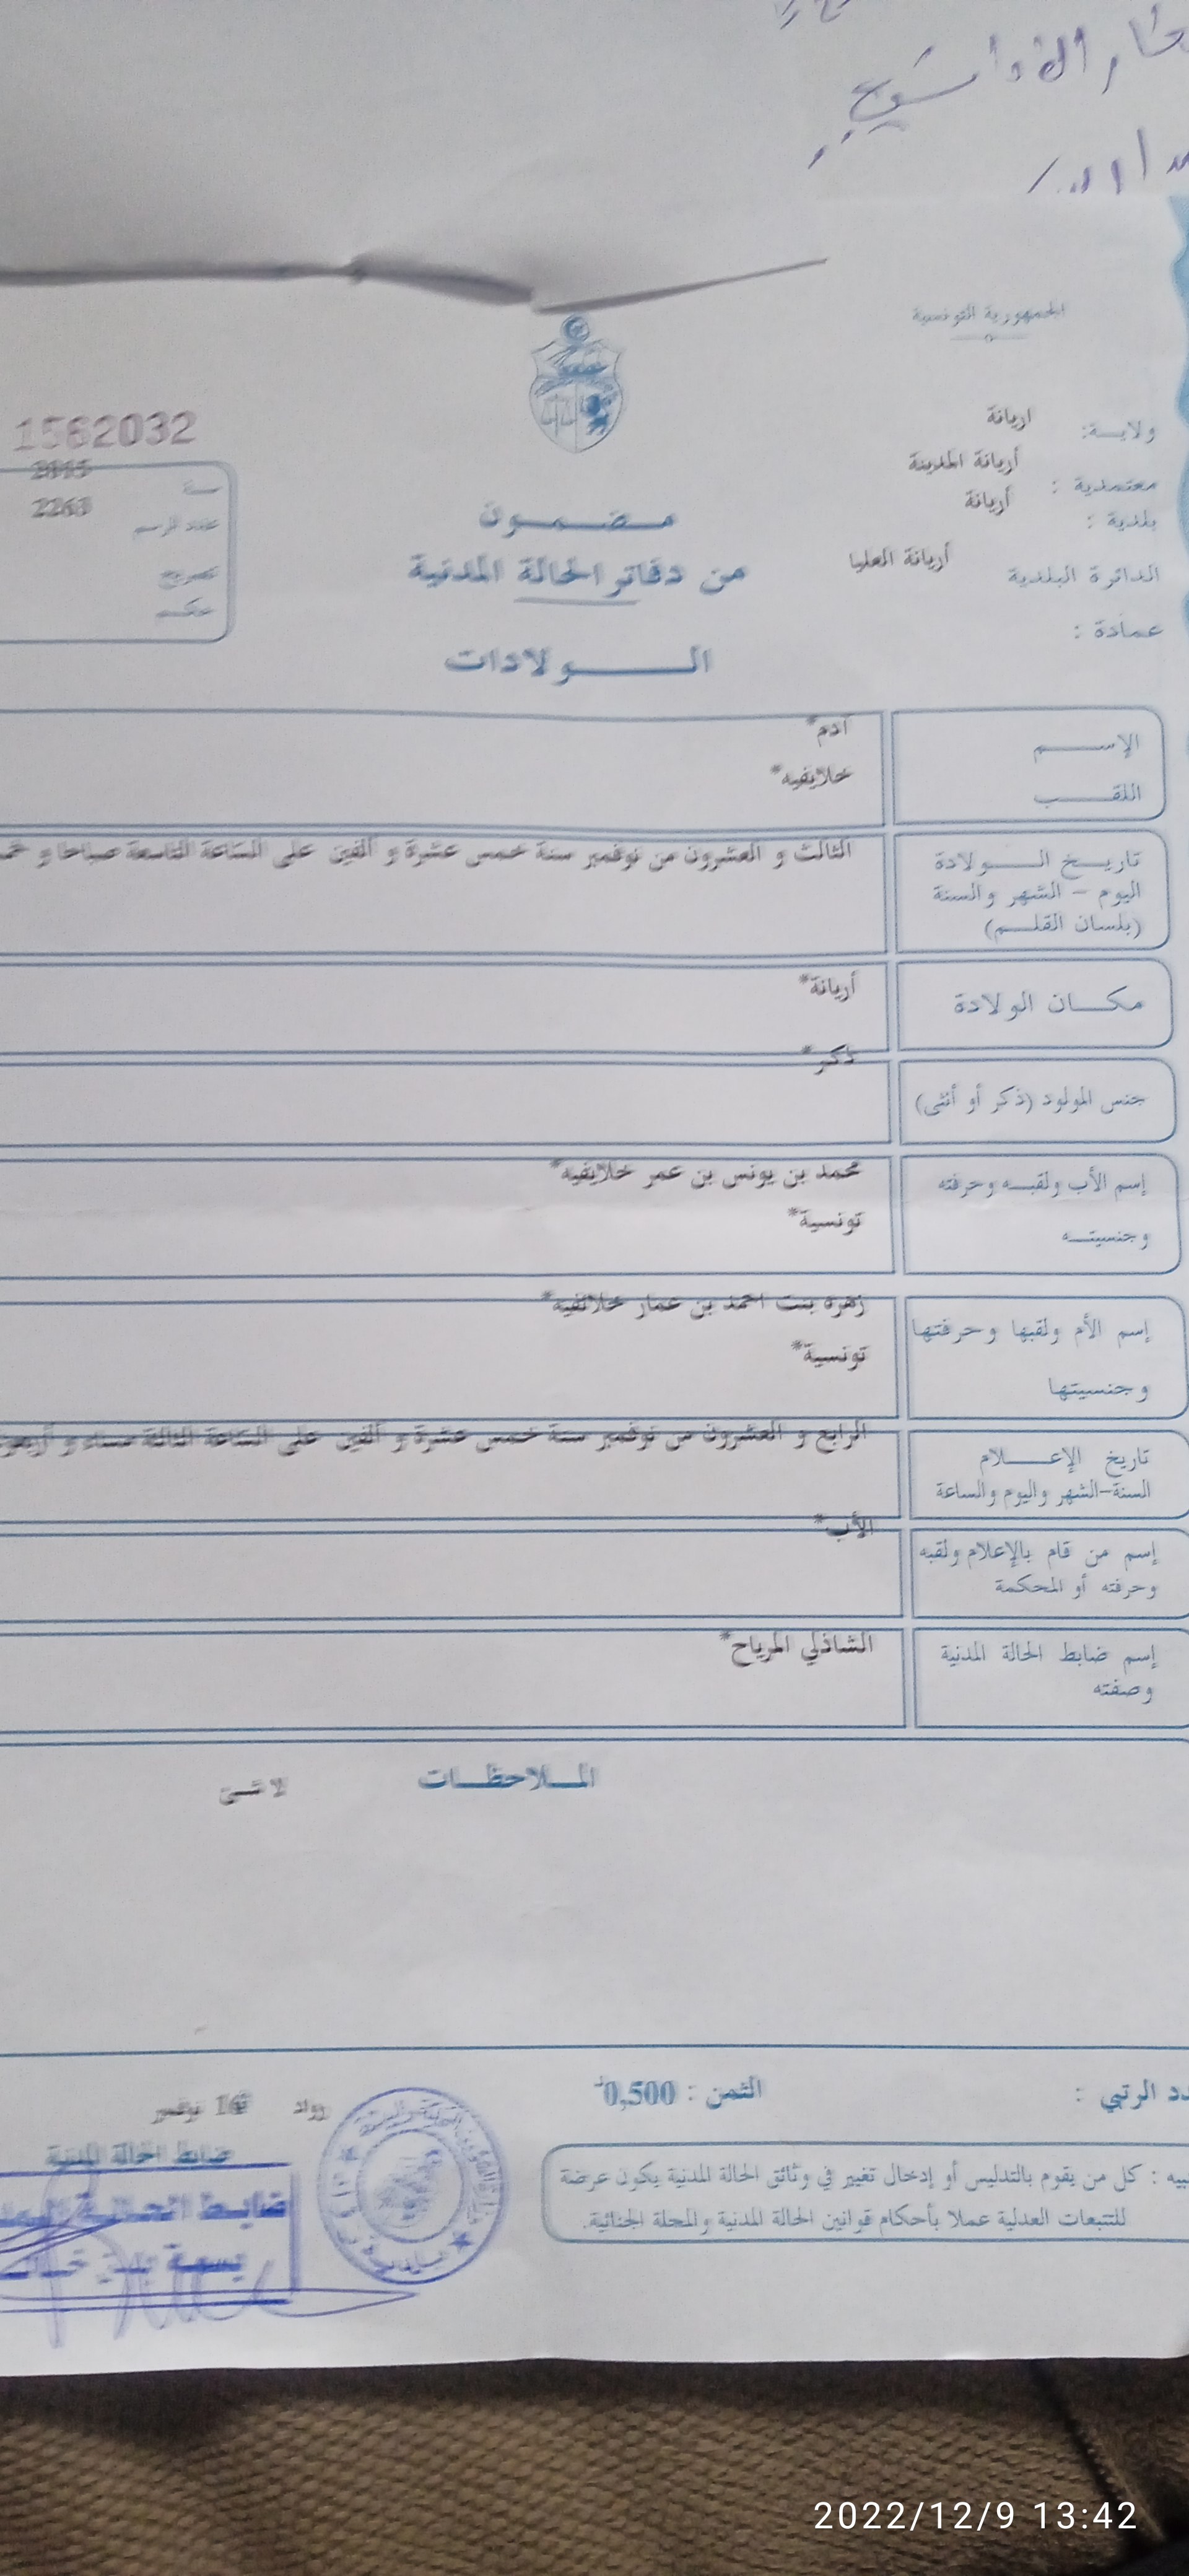 الجمهورية التونسية
ولايــة: اريانة
معتمدية : أريانة المدينة
بلدية : أريانة
الدائرة البلدية أريانة العليا
عمادة :
1562032
سنة 2015
عدد الرسم 2263
تصريح
حكم
مضمون
من دفاتر الحالة المدنية
الولادات
الإسم آدم*
اللقب خلايفيه*
تاريخ الولادة
اليوم - الشهر والسنة
(بلسان القلم)
الثالث و العشرون من نوفمبر سنة خمس عشرة و ألفين على الساعة التاسعة صباحا و
مكان الولادة أريانة*
جنس المولود (ذكر أو أنثى) ذكر*
إسم الأب ولقبه وحرفته محمد بن يونس بن عمر خلايفيه*
وجنسيته تونسية*
إسم الأم ولقبها وحرفتها زهرة بنت احمد بن عمار خلائفيه*
وجنسيتها تونسية*
تاريخ الإعلام
السنة-الشهر واليوم والساعة
الرابع و العشرون من نوفمبر سنة خمس عشرة و ألفين على الساعة الثالثة مساء و
إسم من قام بالإعلام ولقبه
وحرفته أو المحكمة
الأب*
إسم ضابط الحالة المدنية
وصفته
الشاذلي المرياح*
الملاحظات لا شئ
الرتبي :
الثمن : 0,500د
رواد 16 نوفمبر
ضابط الحالة المدنية
ضابط الحالة
بسمة
: كل من يقوم بالتدليس أو إدخال تغيير في وثائق الحالة المدنية يكون عرضة
للتتبعات العدلية عملا بأحكام قوانين الحالة المدنية والمجلة الجنائية.
2022/12/9 13:42